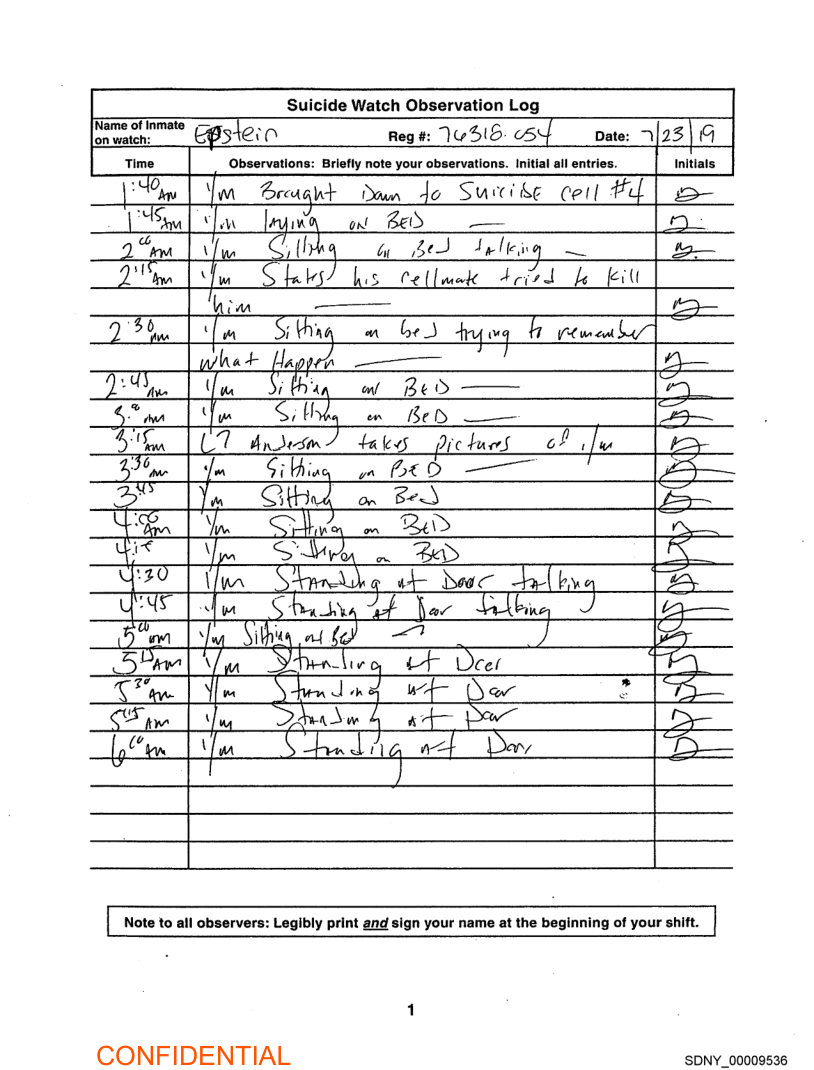 Suicide Watch Observation Log
Name of Inmate on watch: Epstein Reg #: 76318-054 Date: 7/23/19
Time Observations: Briefly note your observations. Initial all entries. Initials
1:40 AM I/m Brought Down to SUICIDE CELL #4
1:45 AM I/m laying on BED
2:00 AM I/m Sitting on Bed talking
2:15 AM I/m States his cellmate tried to kill
him
2:30 AM I/m Sitting on bed trying to remember
what Happen
2:45 AM I/m Sitting on BED
3:00 AM I/m Sitting on BED
3:15 AM LT Anderson takes pictures of I/m
3:30 AM I/m Sitting on BED
3:45 I/m Sitting on Bed
4:00 AM I/m Sitting on BED
I/m Sitting on BED
4:30 I/m Standing at Door talking
4:45 I/m Standing at Door talking
5:00 AM I/m Sitting on BED
5:15 AM I/m Standing at Door
5:30 AM I/m Standing at Door
I/m Standing at Door
6:00 AM I/m Standing at Door
Note to all observers: Legibly print and sign your name at the beginning of your shift.
1
CONFIDENTIAL
SDNY_00009536